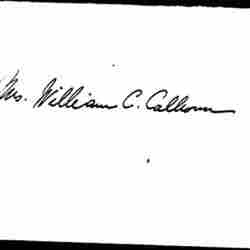 Mrs. William C. Calhoun